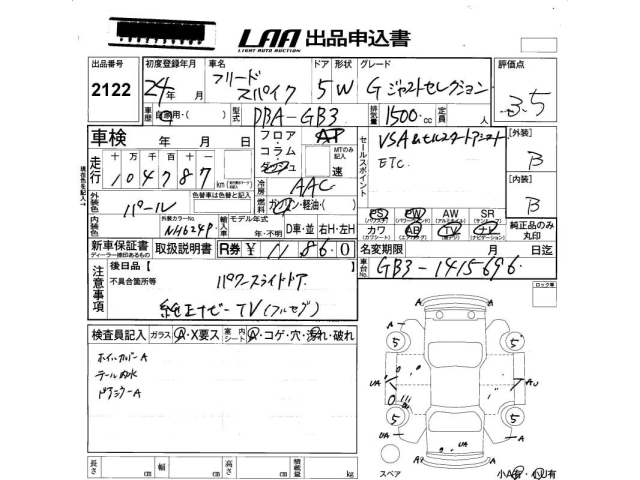 LAA 出品申込書
LIGHT AUTO AUCTION
出品番号 初度登録年月 車名 ドア 形状 グレード 評価点
2122 24年 月 フリードスパイク 5 W G ジャストセレクション 3.5
車歴 自家用・( ) 型式 DBA-GB3 排気量 1500cc 定員 人
車検 年 月 日 フロア・コラム・ AT VSA ETC [外装] B
走行 十万 万 千 百 十 一 104787 km MTのみ記入 速 セールスポイント
冷房 AAC [内装] B
外装色 パール 色替車は色替と記入 燃料 ガソリン・軽油・( )
外装カラーNo. NH624P 輸入車 モデル年式 年・不明 D車・並 右H・左H
PS PW AW SR
カワ AB TV ナビ 純正品のみ丸印
新車保証書 取扱説明書 R券 ¥ 11860 名変期限 月 日迄
ディーラー捺印あるもの
車台No. GB3-1415696
注意事項 後日品【 パワースライドドア
不具合箇所等 純正ナビーTV(フルセグ)
ロック車
検査員記入 ガラス A・X要ス 室内シート A・コゲ・穴・汚れ・破れ
ホイルカバーA
テール内水
ドアミラーA
A A
5 5
UA A AU
5 5
UA A
A2 UA A
長さ cm 幅 cm 高さ cm 積載量 kg
スペア 小A有・小U有